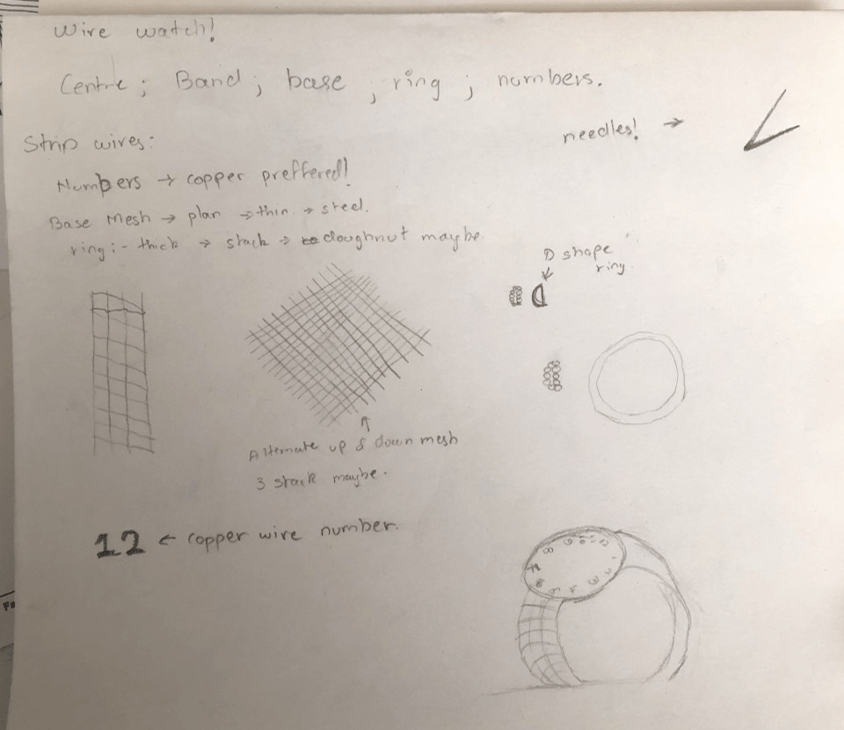 Wire watch!
Centre ; Band ; base , ring ; numbers.
needles! →
Strip wires:
Numbers → copper preffered!
Base Mesh → plan → thin → steel.
ring :- thick → stack → doughnut maybe.
D shape
ring
Alternate up & down mesh
3 stack maybe.
12 ← copper wire number.